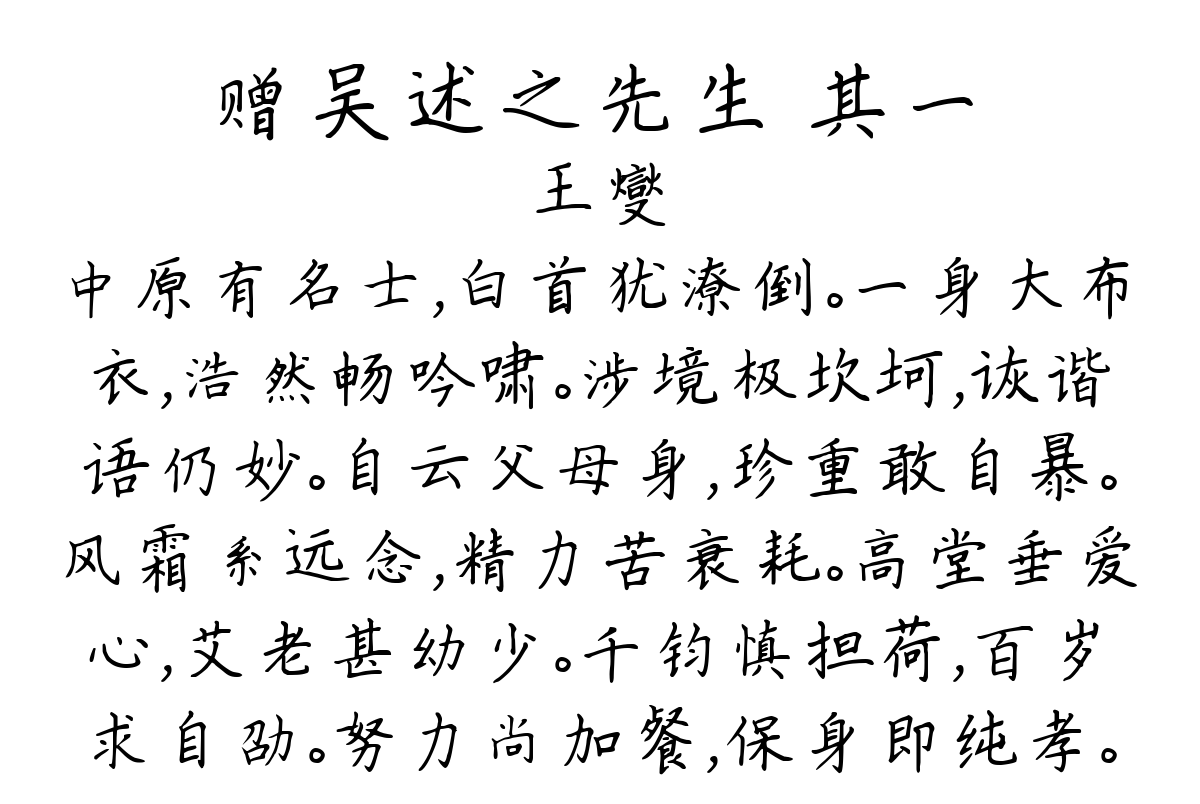 赠吴述之先生 其一
王燮
中原有名士,白首犹潦倒。一身大布
衣,浩然畅吟啸。涉境极坎坷,诙谐
语仍妙。自云父母身,珍重敢自暴。
风霜系远念,精力苦衰耗。高堂垂爱
心,艾老甚幼少。千钧慎担荷,百岁
求自劭。努力尚加餐,保身即纯孝。